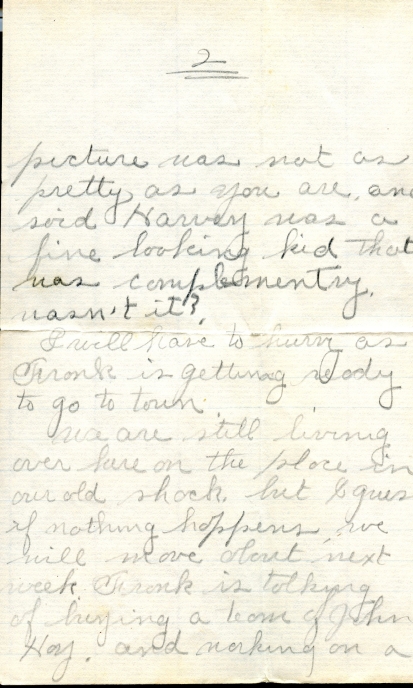 2
picture was not as
pretty as you are, and
said Harvey was a
fine looking kid that
was complementry,
wasn't it?
I will have to hurry as
Frank is getting ready
to go to town.
We are still living
over here on the place in
our old shack, but I gues
if nothing happens, we
will move about next
week. Frank is talking
of buying a team of John
Hoy. and working on a